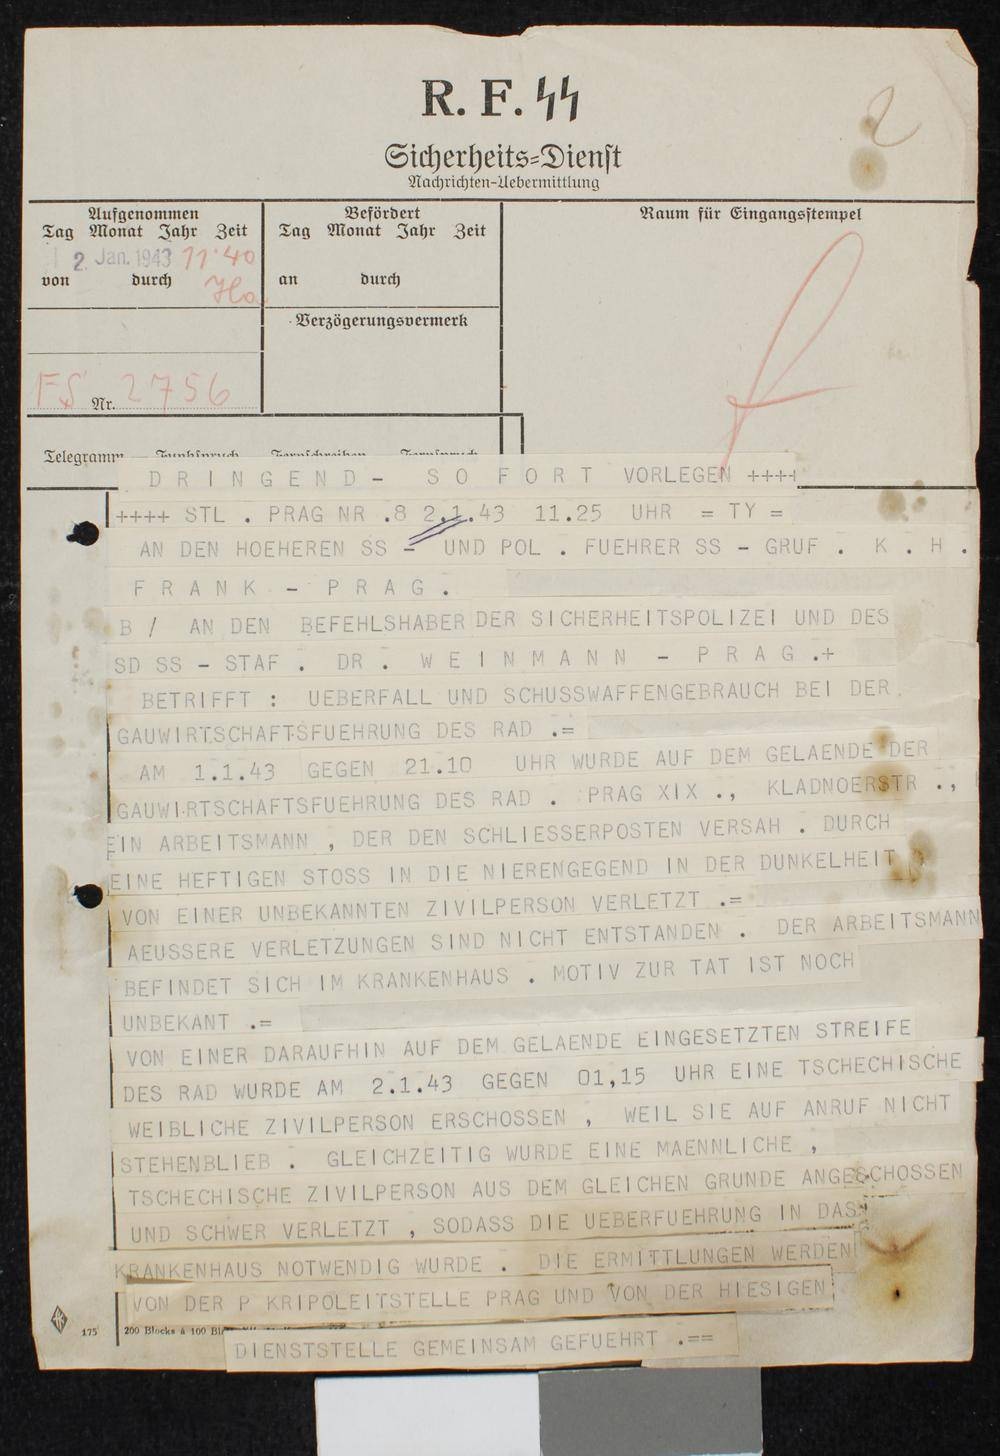 R. F. SS
Sicherheits-Dienst
Nachrichten-Uebermittlung
2
Aufgenommen
Tag Monat Jahr Zeit
2. Jan. 1943 11.40
von durch
Befördert
Tag Monat Jahr Zeit
an durch
Verzögerungsvermerk
Raum für Eingangsstempel
FS Nr. 2756
Telegramm Funkspruch Fernschreiben Fernspruch
D R I N G E N D - S O F O R T VORLEGEN ++++
++++ STL . PRAG NR .8 2.1.43 11.25 UHR = TY =
AN DEN HOEHEREN SS - UND POL . FUEHRER SS - GRUF . K . H .
F R A N K - P R A G .
B / AN DEN BEFEHLSHABER DER SICHERHEITSPOLIZEI UND DES
SD SS - STAF . DR . W E I N M A N N - P R A G .+
BETRIFFT : UEBERFALL UND SCHUSSWAFFENGEBRAUCH BEI DER
GAUWIRTSCHAFTSFUEHRUNG DES RAD .=
AM 1.1.43 GEGEN 21.10 UHR WURDE AUF DEM GELAENDE DER
GAUWIRTSCHAFTSFUEHRUNG DES RAD . PRAG XIX ., KLADNOERSTR .,
EIN ARBEITSMANN , DER DEN SCHLIESSERPOSTEN VERSAH . DURCH
EINE HEFTIGEN STOSS IN DIE NIERENGEGEND IN DER DUNKELHEIT
VON EINER UNBEKANNTEN ZIVILPERSON VERLETZT .=
AEUSSERE VERLETZUNGEN SIND NICHT ENTSTANDEN . DER ARBEITSMANN
BEFINDET SICH IM KRANKENHAUS . MOTIV ZUR TAT IST NOCH
UNBEKANT .=
VON EINER DARAUFHIN AUF DEM GELAENDE EINGESETZTEN STREIFE
DES RAD WURDE AM 2.1.43 GEGEN 01,15 UHR EINE TSCHECHISCHE
WEIBLICHE ZIVILPERSON ERSCHOSSEN , WEIL SIE AUF ANRUF NICHT
STEHENBLIEB . GLEICHZEITIG WURDE EINE MAENNLICHE ,
TSCHECHISCHE ZIVILPERSON AUS DEM GLEICHEN GRUNDE ANGESCHOSSEN
UND SCHWER VERLETZT , SODASS DIE UEBERFUEHRUNG IN DAS
KRANKENHAUS NOTWENDIG WURDE . DIE ERMITTLUNGEN WERDEN
VON DER P KRIPOLEITSTELLE PRAG UND VON DER HIESIGEN
175 200 Blocks à 100
DIENSTSTELLE GEMEINSAM GEFUEHRT .==